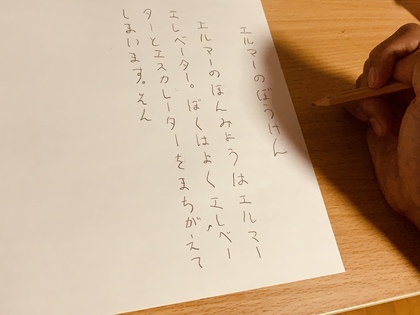 エルマーのぼうけん
エルマーのほんみょうはエルマー
エレベーター。ぼくはよくエレベー
ターとエスカレーターをまちがえて
しまいます。そん